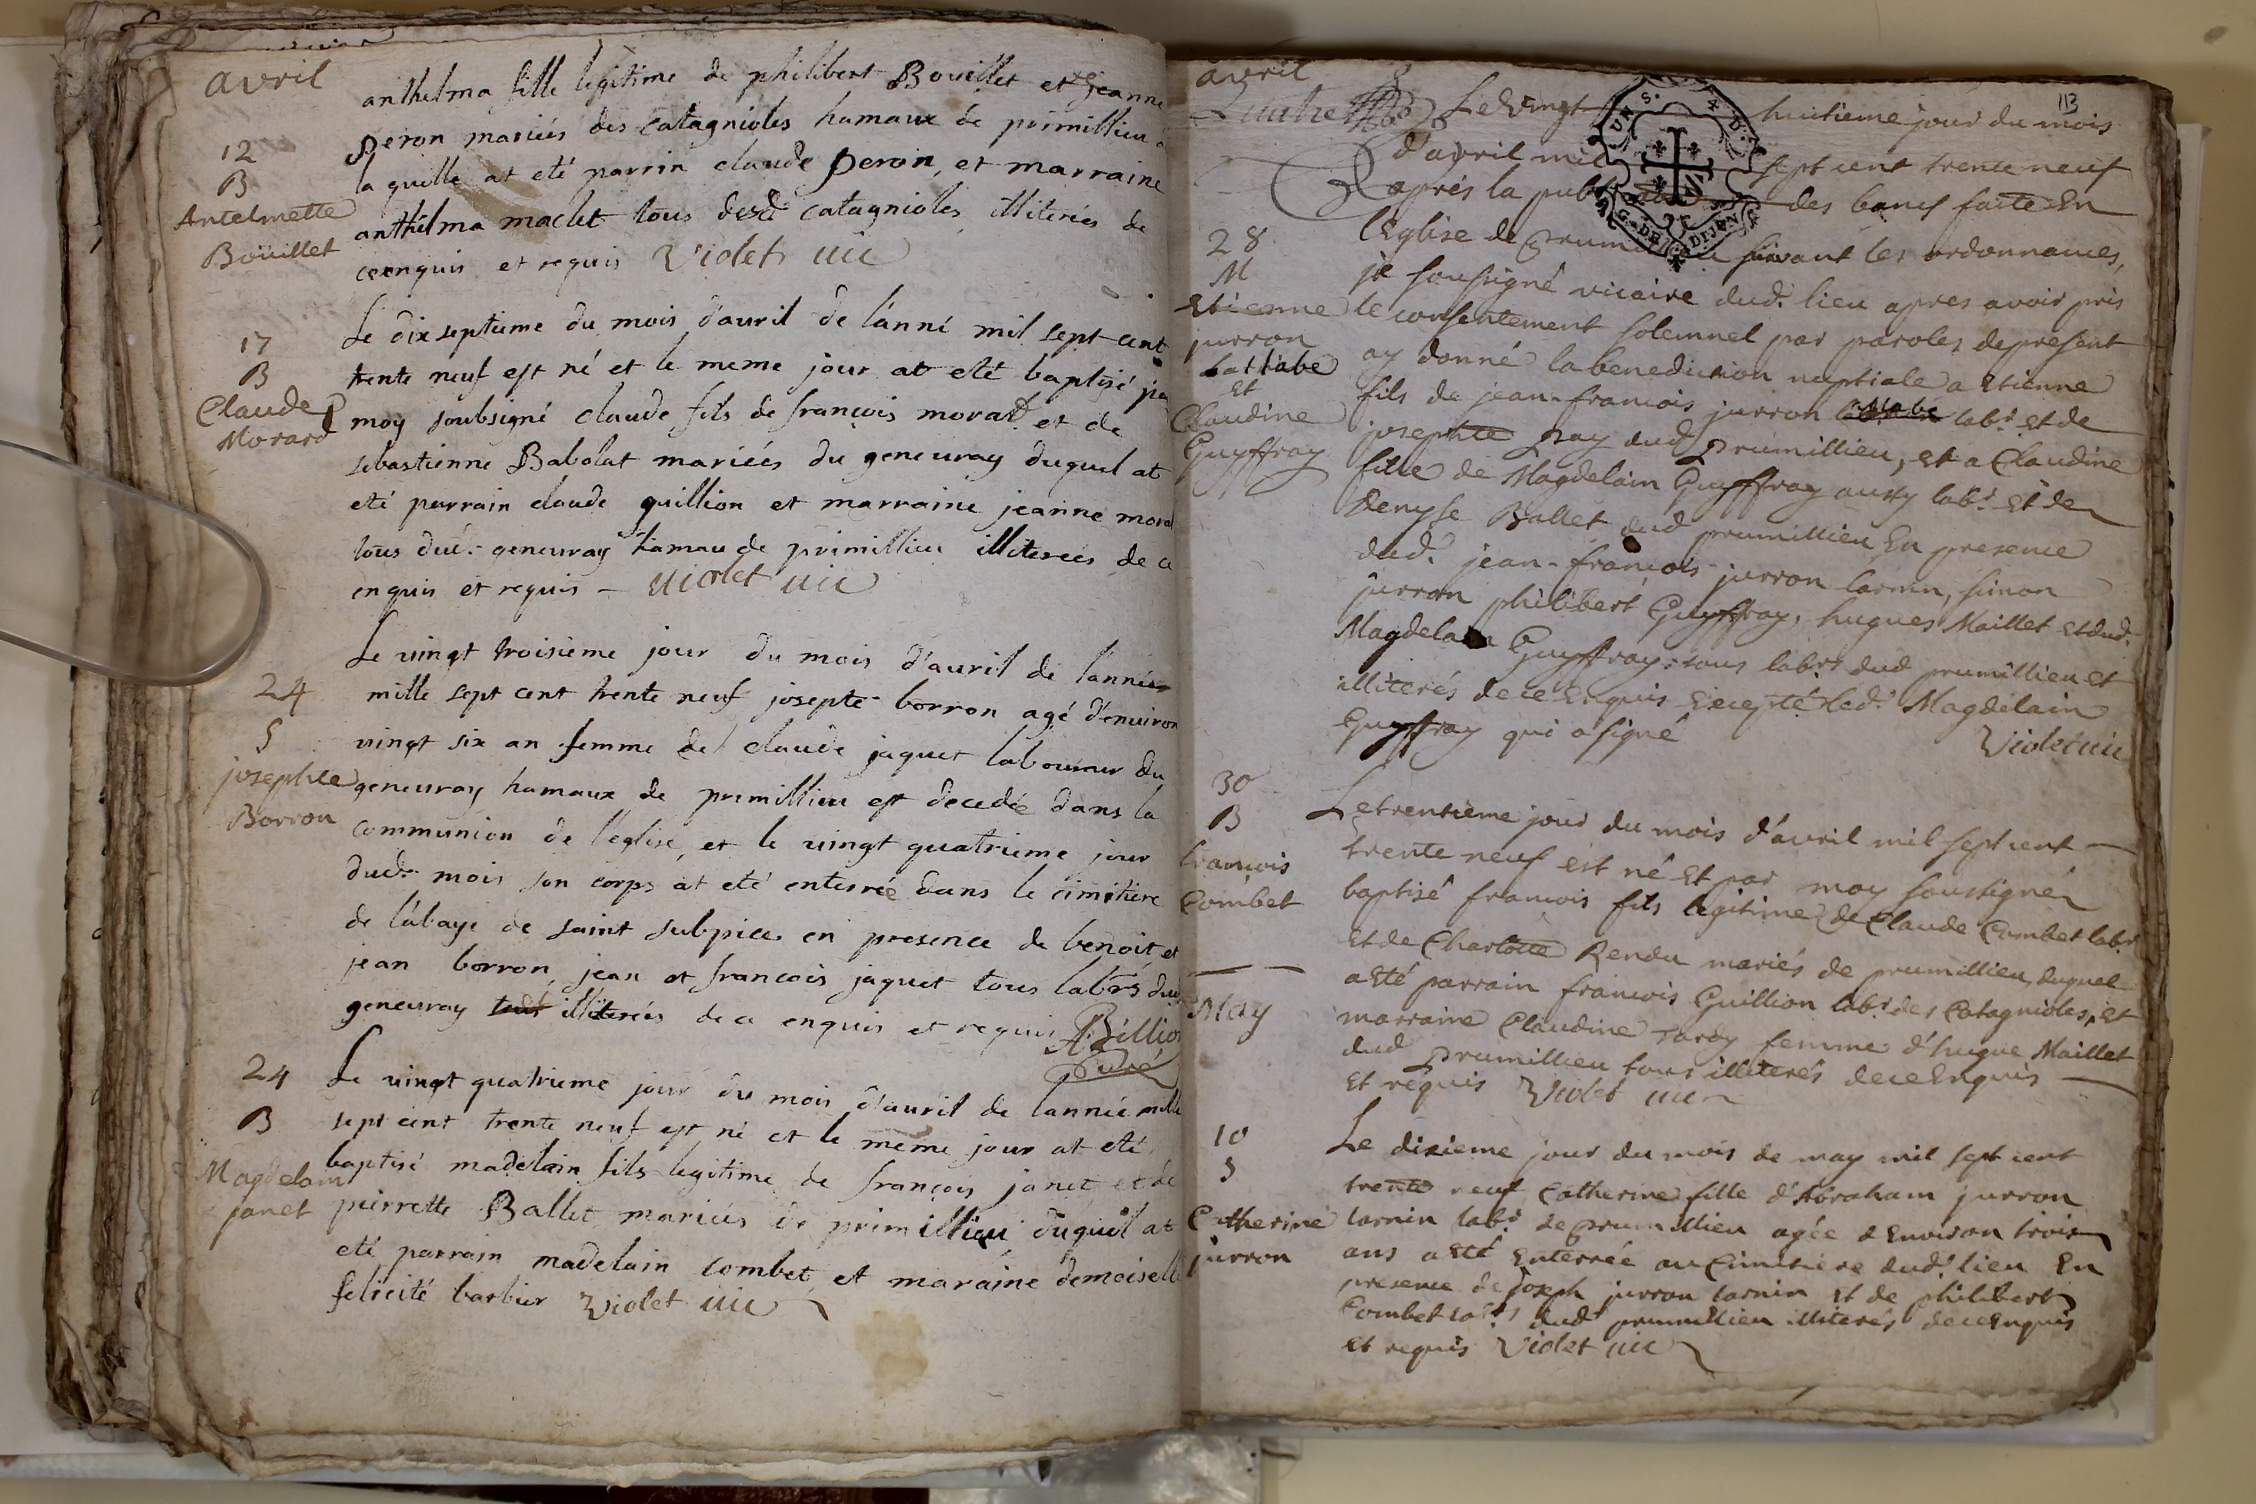 avril
anthelma fille legitime de philibert Bouillet et jeanne
peron mariés des catagnioles hamaux de primillieu
la quille at eté parrin claude peron, et marraine
anthelma maclet tous desd catagnioles illiterés de
ce enquis et requis Violet vic
12
B
Antelmette
Boüillet
Le dix septieme du mois d'auril de l'anné mil sept cent
trente neuf est né et le meme jour at eté baptisé par
moy soubsigné claude fils de françois morard et de
sebastienne Babolat mariées du geneuray duquel at
eté parrain claude guillion et marraine jeanne morar
tous dud. geneuray hamau de primillieu illiterées de ce
enquis et requis - violet vic
17
B
Claude
Morard
Le vingt troisieme jour du mois d'auril de l'année
mille sept cent trente neuf josepte borron agé d'enuiron
vingt six an femme de claude jaquet laboureur du
geneuray hamaux de primillieu est decedée dans la
communion de l'eglise, et le vingt quatrieme jour
dud. mois son corps at eté enterrée dans le cimitiere
de l'abaye de saint sulpice en presence de benoit et
jean borron, jean et francois jaquet tous labrs dud
geneuray tous illiterées de ce enquis et requis A. Billion
Curé
24
S
josephte
Borron
Le vingt quatrieme jour du mois d'auril de lannée mille
sept cent trente neuf est né et le meme jour at eté
baptisé madelain fils legitime de françois janet et de
pierrette Ballet mariées de primillieu duquel at
eté parrain madelain combet, et maraine demoiselle
felicité barbier Violet vic
24
B
Magdelain
janet
avril
113
Le Vingt huitieme jour du mois
d'avril mil sept cent trente neuf
aprés la publ des bancs faite En
l'Eglise de suivant les ordonnances,
je sousigné vicaire dud. lieu apres avoir pris
le consentement solemnel par paroles de present
ay donné la benediction nuptiale a Etienne
fils de jean-francois jurron labr. Et de
josephte pay dud prumillieu, et a Claudine
fille de Magdelain Guyffray aussy labr. Et de
Denyse Ballet dud prumillieu En presence
dud. jean-francois jurron larnin, simon
jurron philibert Guyffray, hugues Maillet et dud.
Magdelain Guyffray, tous labrs dud prumillieu et
illiterés de ce Enquis Excepté led. Magdelain
Guyffray qui a signé Violet vic
28
M
Etienne
jurron
battabe
Et
Claudine
Guyffray
Le trentieme jour du mois d'avril mil sept cent
trente neuf est né Et par moy soussigné
baptisé francois fils legitime de Claude Combet labr.
Et de Charlotte Rendu mariés de prumillieu, duquel
a Eté parrain francois Guillion labr. des Catagnioles, Et
marraine Claudine Tardy femme d'hugue Maillet
dud prumillieu tous illiterés de ce Enquis
Et requis Violet vic
30
B
francois
Combet
May
Le dixieme jour du mois de may mil sept cent
trente neuf Catherine fille d'Abraham jurron
larnin labr. de prumillieu agée d Environ trois
ans a Eté Enterrée au Cimitiere dud. lieu En
presence de joseph jurron larnin Et de philibert
Combet labrs dud prumillieu illiterés de ce Enquis
Et requis Violet vic
10
S
Catherine
jurron